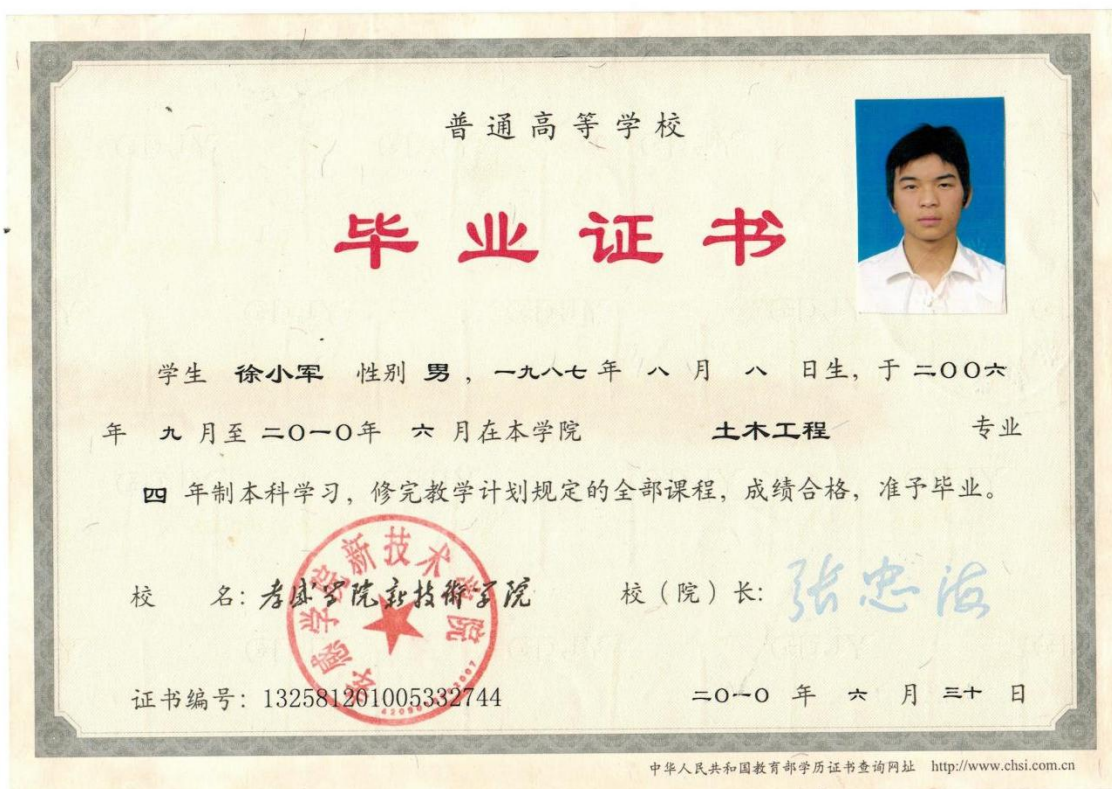 普通高等学校
毕业证书
学生 徐小军 性别 男 ，一九八七 年 八 月 八 日生，于 二〇〇六
年 九 月至 二〇一〇年 六 月在本学院 土木工程 专业
四 年制本科学习，修完教学计划规定的全部课程，成绩合格，准予毕业。
校 名：孝感学院新技術学院 校（院）长：张忠海
孝感学院新技术学院
证书编号：132581201005332744 二〇一〇 年 六 月 三十 日
中华人民共和国教育部学历证书查询网址 http://www.chsi.com.cn